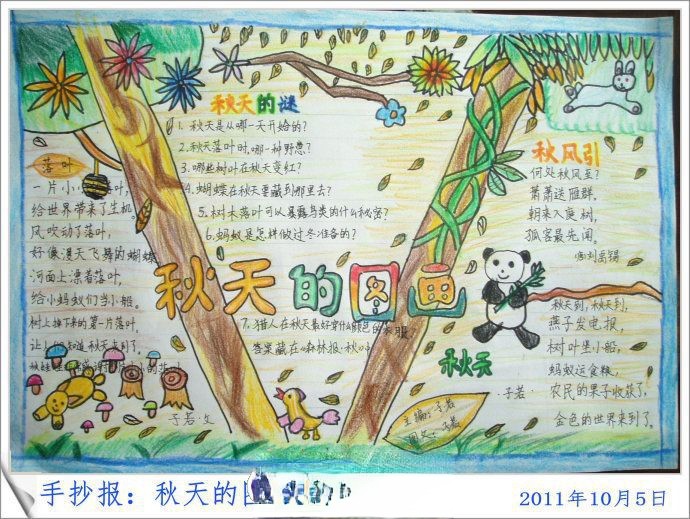 落叶
一片小小
给世界带来了生机。
风吹动了落叶，
好像漫天飞舞的蝴蝶
河面上漂着落叶，
给小蚂蚁们当小船。
树上掉下来的第一片落叶，
让小 知道秋天来到了。
子若 文
秋天的谜
1. 秋天是从哪一天开始的？
2. 秋天落叶时，哪一种野兽？
3. 哪些树叶在秋天变红？
4. 蝴蝶在秋天要藏到那里去？
5. 树木落叶可以暴露鸟类的什么秘密？
6. 蚂蚁是怎样做过冬准备的？
秋天的图画
7. 猎人在秋天最好穿什么颜色的衣服
答案藏在《森林报·秋》
秋风引
何处秋风至？
萧萧送雁群。
朝来入庭树，
孤客最先闻。
刘禹锡
秋天
秋天到，秋天到，
燕子发电报，
树叶堡小船，
蚂蚁运食粮，
农民的果子收获了，
金色的世界来到了。
·子若·
主编：子若
图文：子若
手抄报：秋天的
2011年10月5日